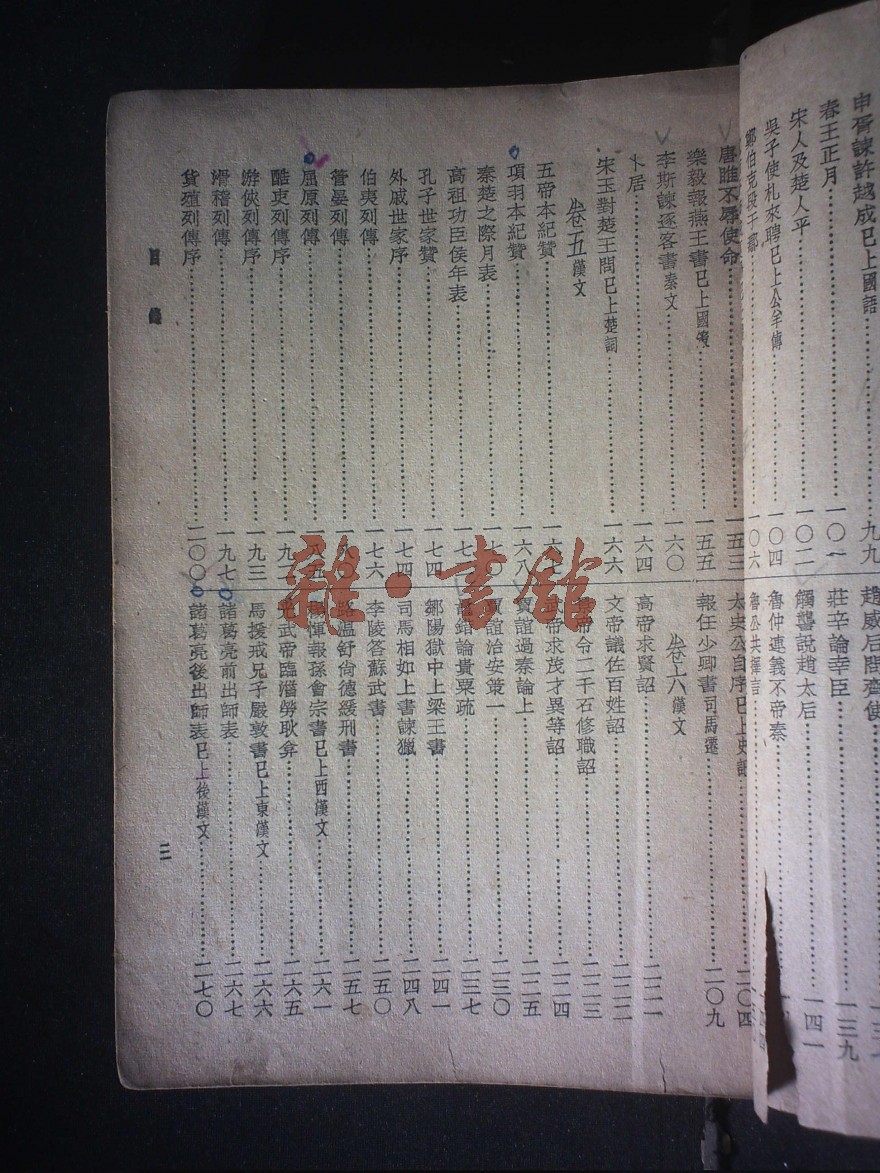 申胥諫許越成已上國語 九九
春王正月 一〇一
宋人及楚人平 一〇二
吳子使札來聘已上公羊傳 一〇四
鄭伯克段于鄢 一〇六
趙威后問齊使
莊辛論幸臣 一三九
觸讋說趙太后 一四一
魯仲連義不帝秦
魯公共擇言
唐雎不辱使命 一五三
樂毅報燕王書已上國策 一五五
李斯諫逐客書秦文 一六〇
卜居 一六四
宋玉對楚王問已上楚詞 一六六
卷五漢文
五帝本紀贊 一六七
項羽本紀贊 一六八
秦楚之際月表 一七
高祖功臣侯年表 一七
孔子世家贊 一七四
外戚世家序 一七四
伯夷列傳 一七六
管晏列傳 一八〇
屈原列傳 一八五
酷吏列傳序 一九二
游俠列傳序 一九三
滑稽列傳 一九七
貨殖列傳序 二〇〇
太史公自序已上史記 二〇四
報任少卿書司馬遷 二〇九
卷六漢文
高帝求賢詔 二二一
文帝議佐百姓詔 二二二
景帝令二千石修職詔 二二三
武帝求茂才異等詔 二二四
賈誼過秦論上 二二五
賈誼治安策一 二三〇
鼂錯論貴粟疏 二三七
鄒陽獄中上梁王書 二四一
司馬相如上書諫獵 二四八
李陵答蘇武書 二五〇
路温舒尚德緩刑書 二五七
楊惲報孫會宗書已上西漢文 二六一
光武帝臨淄勞耿弇 二六五
馬援戒兄子嚴敦書已上東漢文 二六六
諸葛亮前出師表 二六七
諸葛亮後出師表已上後漢文 二七〇
目錄
三
雜·書館